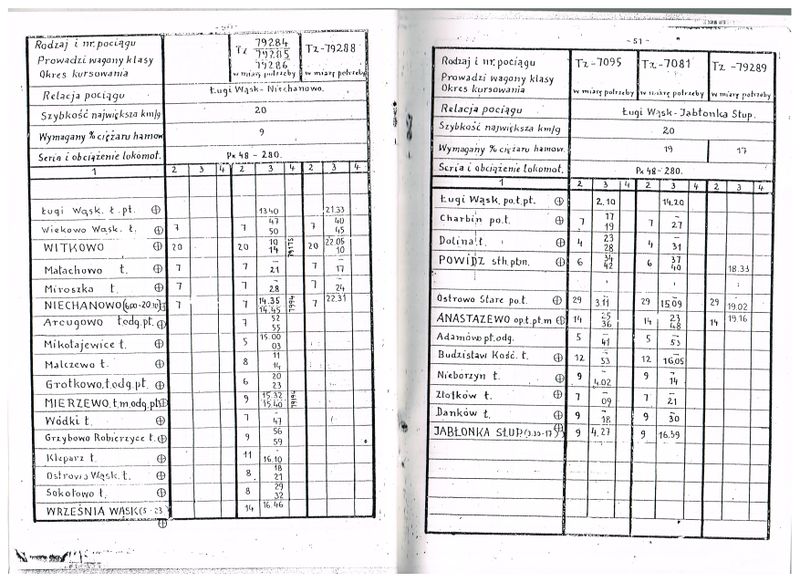 Rodzaj i nr. pociągu Tz 79284 79285 79286 Tz-79288
Prowadzi wagony klasy
Okres kursowania w miarę potrzeby w miarę potrzeby
Relacja pociągu Ługi Wąsk-Niechanowo.
Szybkość największa km/g 20
Wymagany % ciężaru hamow 9
Seria i obciążenie lokomot. Px48-280.
1 2 3 4 2 3 4 2 3 4
Ługi Wąsk. ł. pt. 1340 21.33
Wiekowo Wąsk. ł. 7 7 47 50 7 40 45
WITKOWO 20 20 10 14 79175 20 22.05 10
Małachowo t. 7 7 – 21 7 – 17
Miroszka t. 7 7 – 28 7 – 24
NIECHANOWO (600-2010) 7 7 14.35 14.45 7994 7 22.31
Arcugowo todg.pt. 7 52 55
Mikołajewice t. 5 15.00 03
Malczewo t. 8 11 14
Grotkowo.t.odg.pt. 6 20 23
MIERZEWO.t.m.odg.pt 9 15.32 15.40
Wódki t. 7 – 47
Grzybowo Rabierzyce t. 9 56 59
Kleparz t. 11 – 16.10
Ostrowo Wąsk. t. 8 18 21
Sokołowo t. 8 29 32
WRZEŚNIA WĄSK (5-23) 14 16.46
-51-
Rodzaj i nr. pociągu Tz-7095 Tz-7081 Tz-79289
Prowadzi wagony klasy
Okres kursowania w miarę potrzeby w miarę potrzeby w miarę potrzeby
Relacja pociągu Ługi Wąsk-Jabłonka Słup.
Szybkość największa km/g 20
Wymagany % ciężaru hamow. 19 17
Seria i obciążenie lokomot. Px48-280.
1 2 3 4 2 3 4 2 3 4
Ługi Wąsk. po.t.pt. 2.10 14.20
Charbin po.t. 7 17 19 7 – 27
Dolina t. 4 23 28 4 – 31
POWIDZ sth.pbn. 6 34 42 6 37 40 18.33
Ostrowo Stare po.t. 29 3.11 29 15.09 29 19.02
ANASTAZEWO op.t.pt.m 14 25 36 14 23 48 14 19.16
Adamowo pt.odg. 5 – 41 5 – 53
Budzisław Kość. t. 12 – 53 12 – 16.05
Nieborzyn t. 9 – 4.02 9 – 14
Złotków t. 7 – 09 7 – 21
Danków t. 9 – 18 9 – 30
JABŁONKA SŁUP (3.30-17) 9 4.27 9 16.39